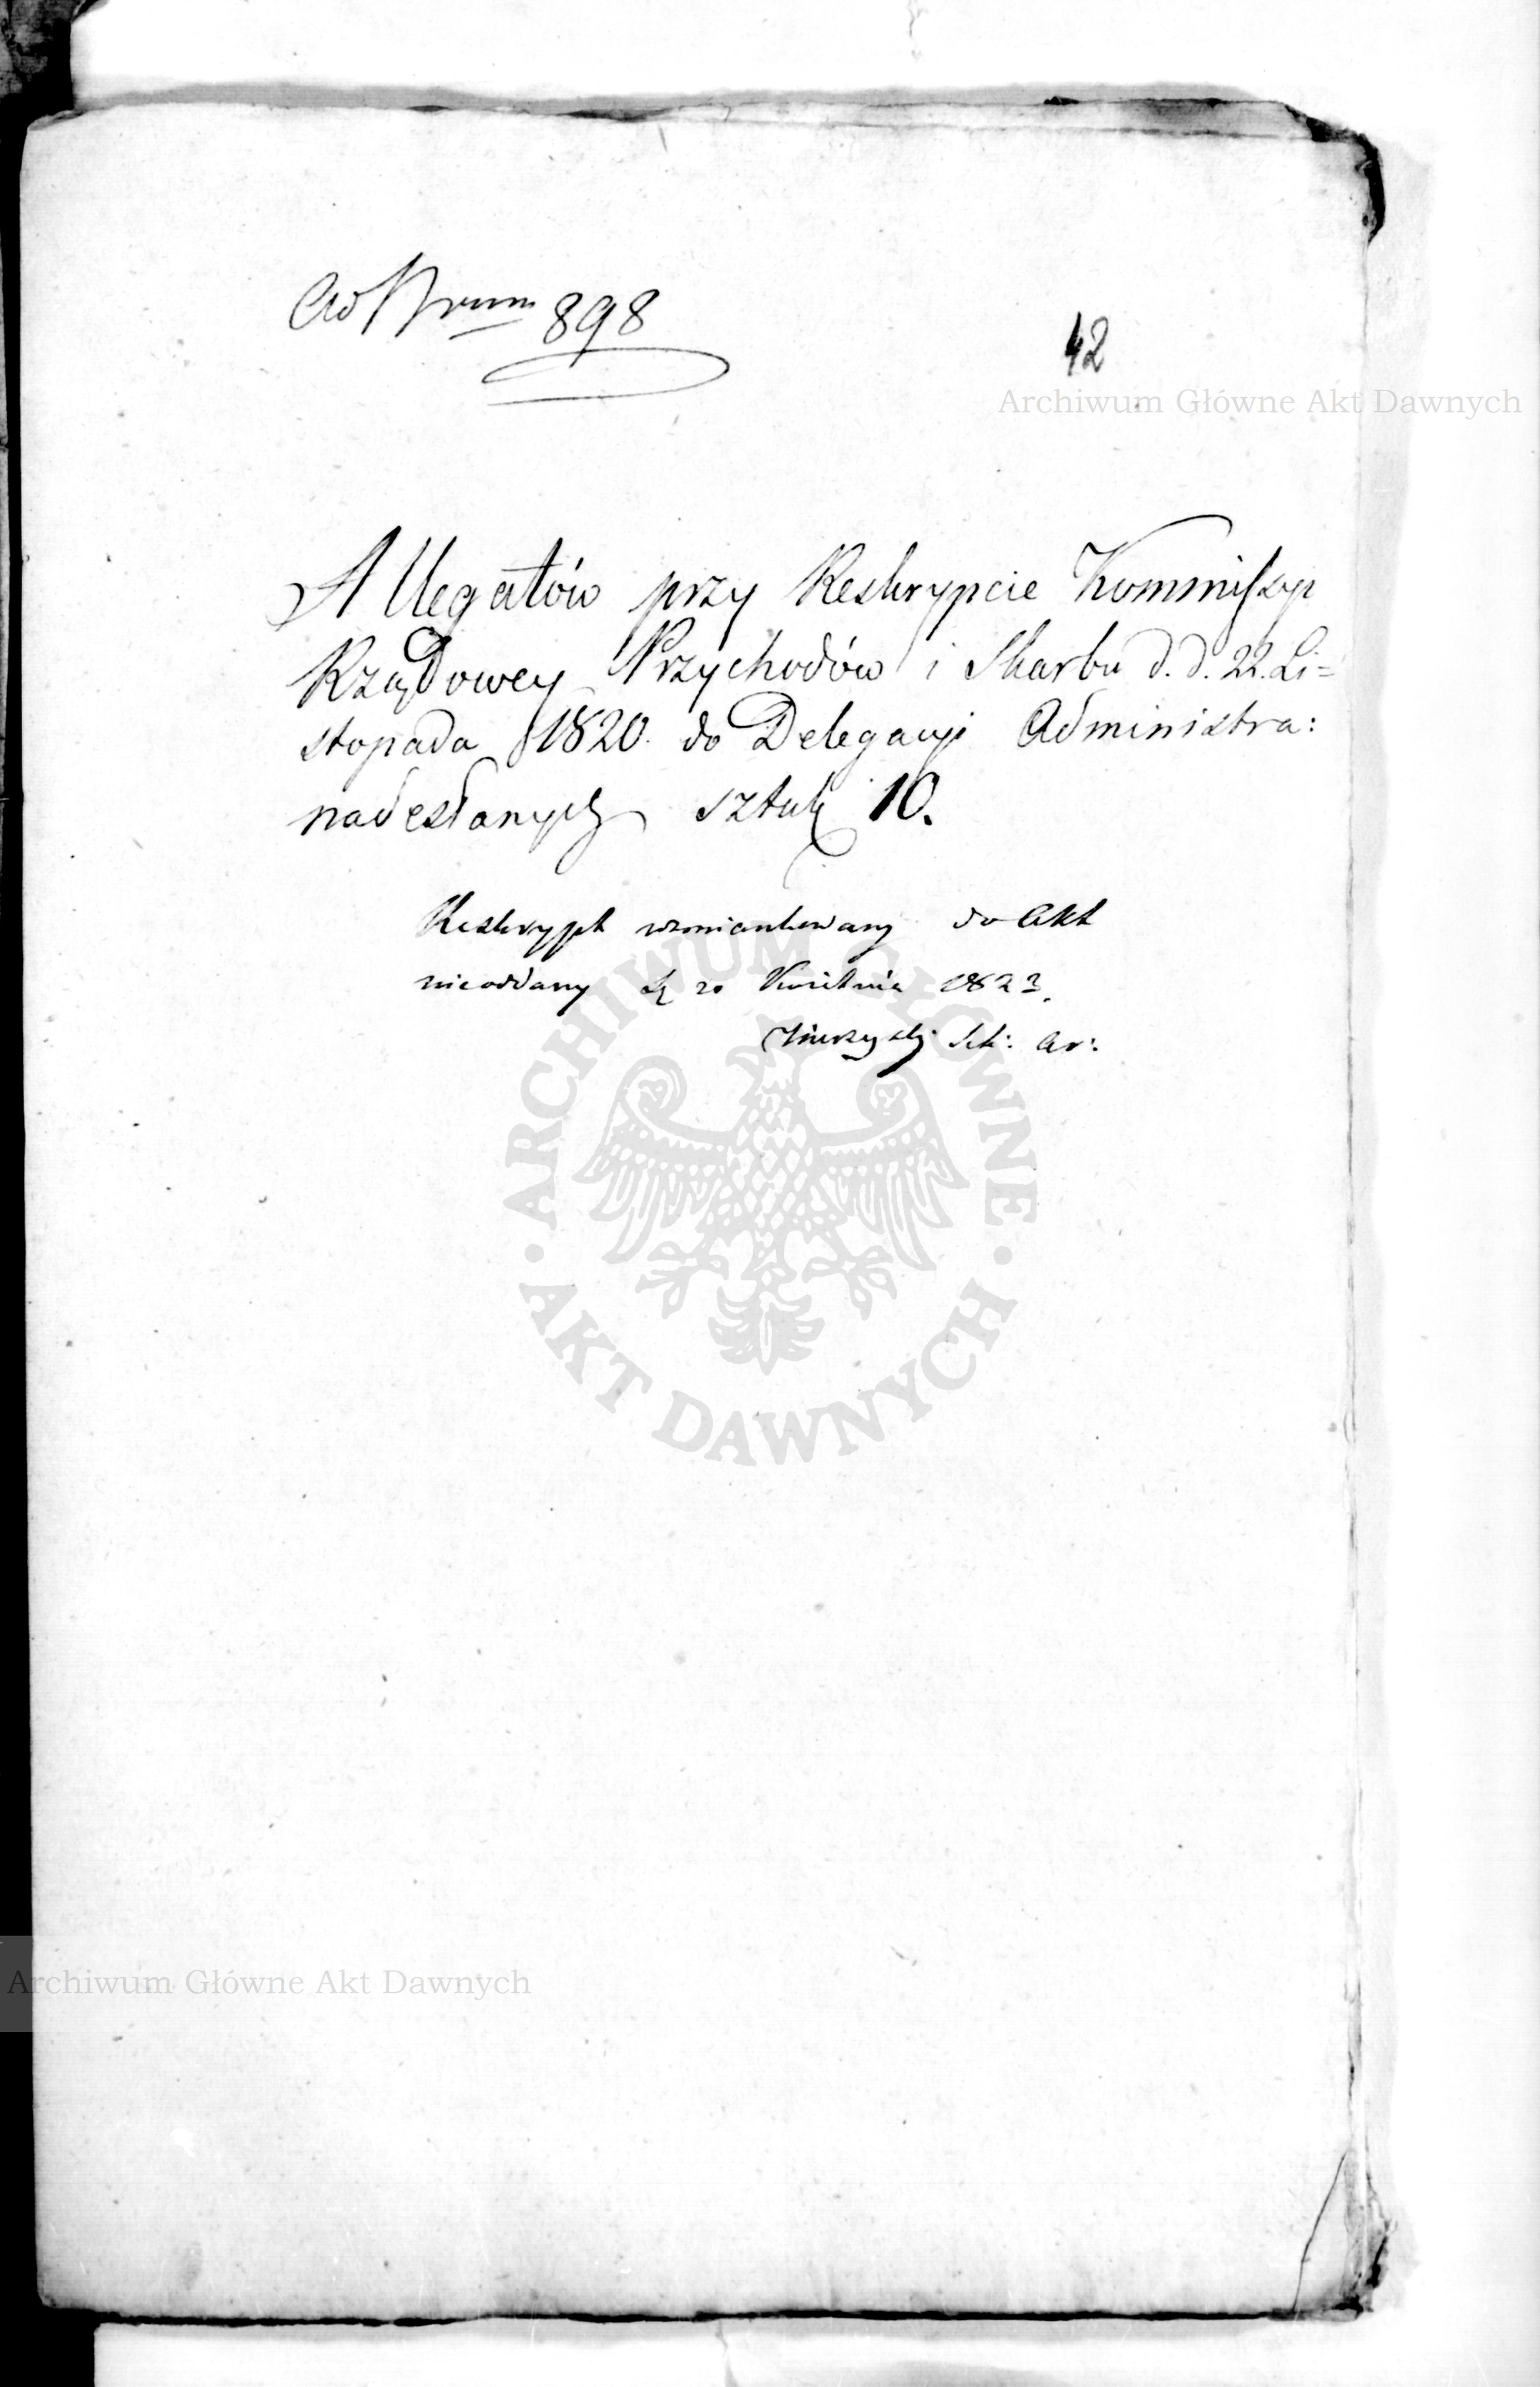 Ad Nrum 898
42
Archiwum Główne Akt Dawnych
Allegatów przy Reskrypcie Kommissyi
Rządowey Przychodów i Skarbu d. d. 22. Li=
stopada 1820. do Delegacyi Administra:
nadesłanych sztuk 10.
Reskrypt wzmiankowany do Akt
nieoddany 20 Kwietnia 1823.
Sek: Ar:
ARCHIWUM GŁÓWNE
AKT DAWNYCH
Archiwum Główne Akt Dawnych